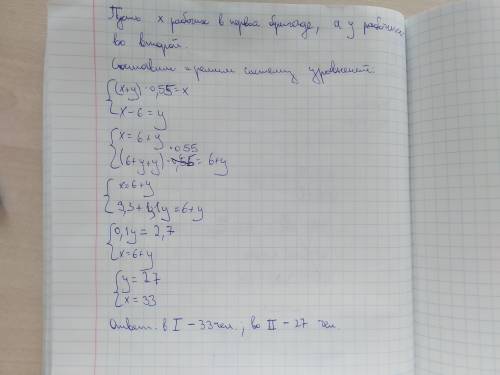 Пусть x рабочих в первой бригаде, а y рабочих
во второй.
Составим и решим систему уравнений
(x+y)·0,55=x
x-6=y
x=6+y
(6+y+y)·0,55=6+y
x=6+y
3,3+1,1y=6+y
0,1y=2,7
x=6+y
y=27
x=33
Ответ: в I - 33 чел., во II - 27 чел.